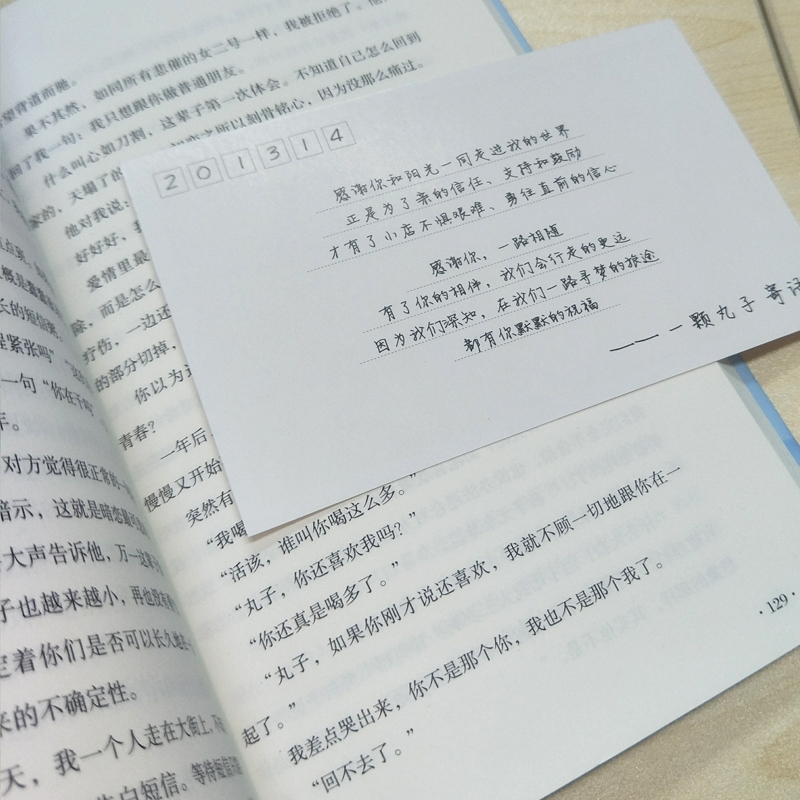 望背道而驰。
果不其然，如同所有悲催的女二号一样，我被拒绝了。他
回了我一句：我只想跟你做普通朋友。
什么叫心如刀割，这辈子第一次体会。不知道自己怎么回到
家的，天塌了的
之所以刻骨铭心，因为没那么痛过。
他对我说：
好好好，我
爱情里最
除，而是怎么
疗伤，一边还
的部分切掉，
你以为这
青春？
一年后
慢慢又开始
突然有
“我喝
“活该，谁叫你喝这么多。”
“丸子，你还喜欢我吗？”
“你还真是喝多了。”
“丸子，如果你刚才说还喜欢，我就不顾一切地跟你在一
起了。”
我差点哭出来，你不是那个你，我也不是那个我了。
“回不去了。”
·129·
201314
感谢你和阳光一同走进我的世界
正是为了亲的信任、支持和鼓励
才有了小店不惧艰难、勇往直前的信心
感谢你，一路相随
有了你的相伴，我们会行走的更远
因为我们深知，在我们一路寻梦的旅途
都有你默默的祝福
—— 一颗丸子 寄语
长的短信
程紧张吗”
一句“你在干吗
年。
对方觉得很正常的
暗示，这就是暗恋
大声告诉他，万一
子也越来越小，再也
定着你们是否可以长久地
来的不确定性。
天，我一个人走在大街上，
告白短信。等待